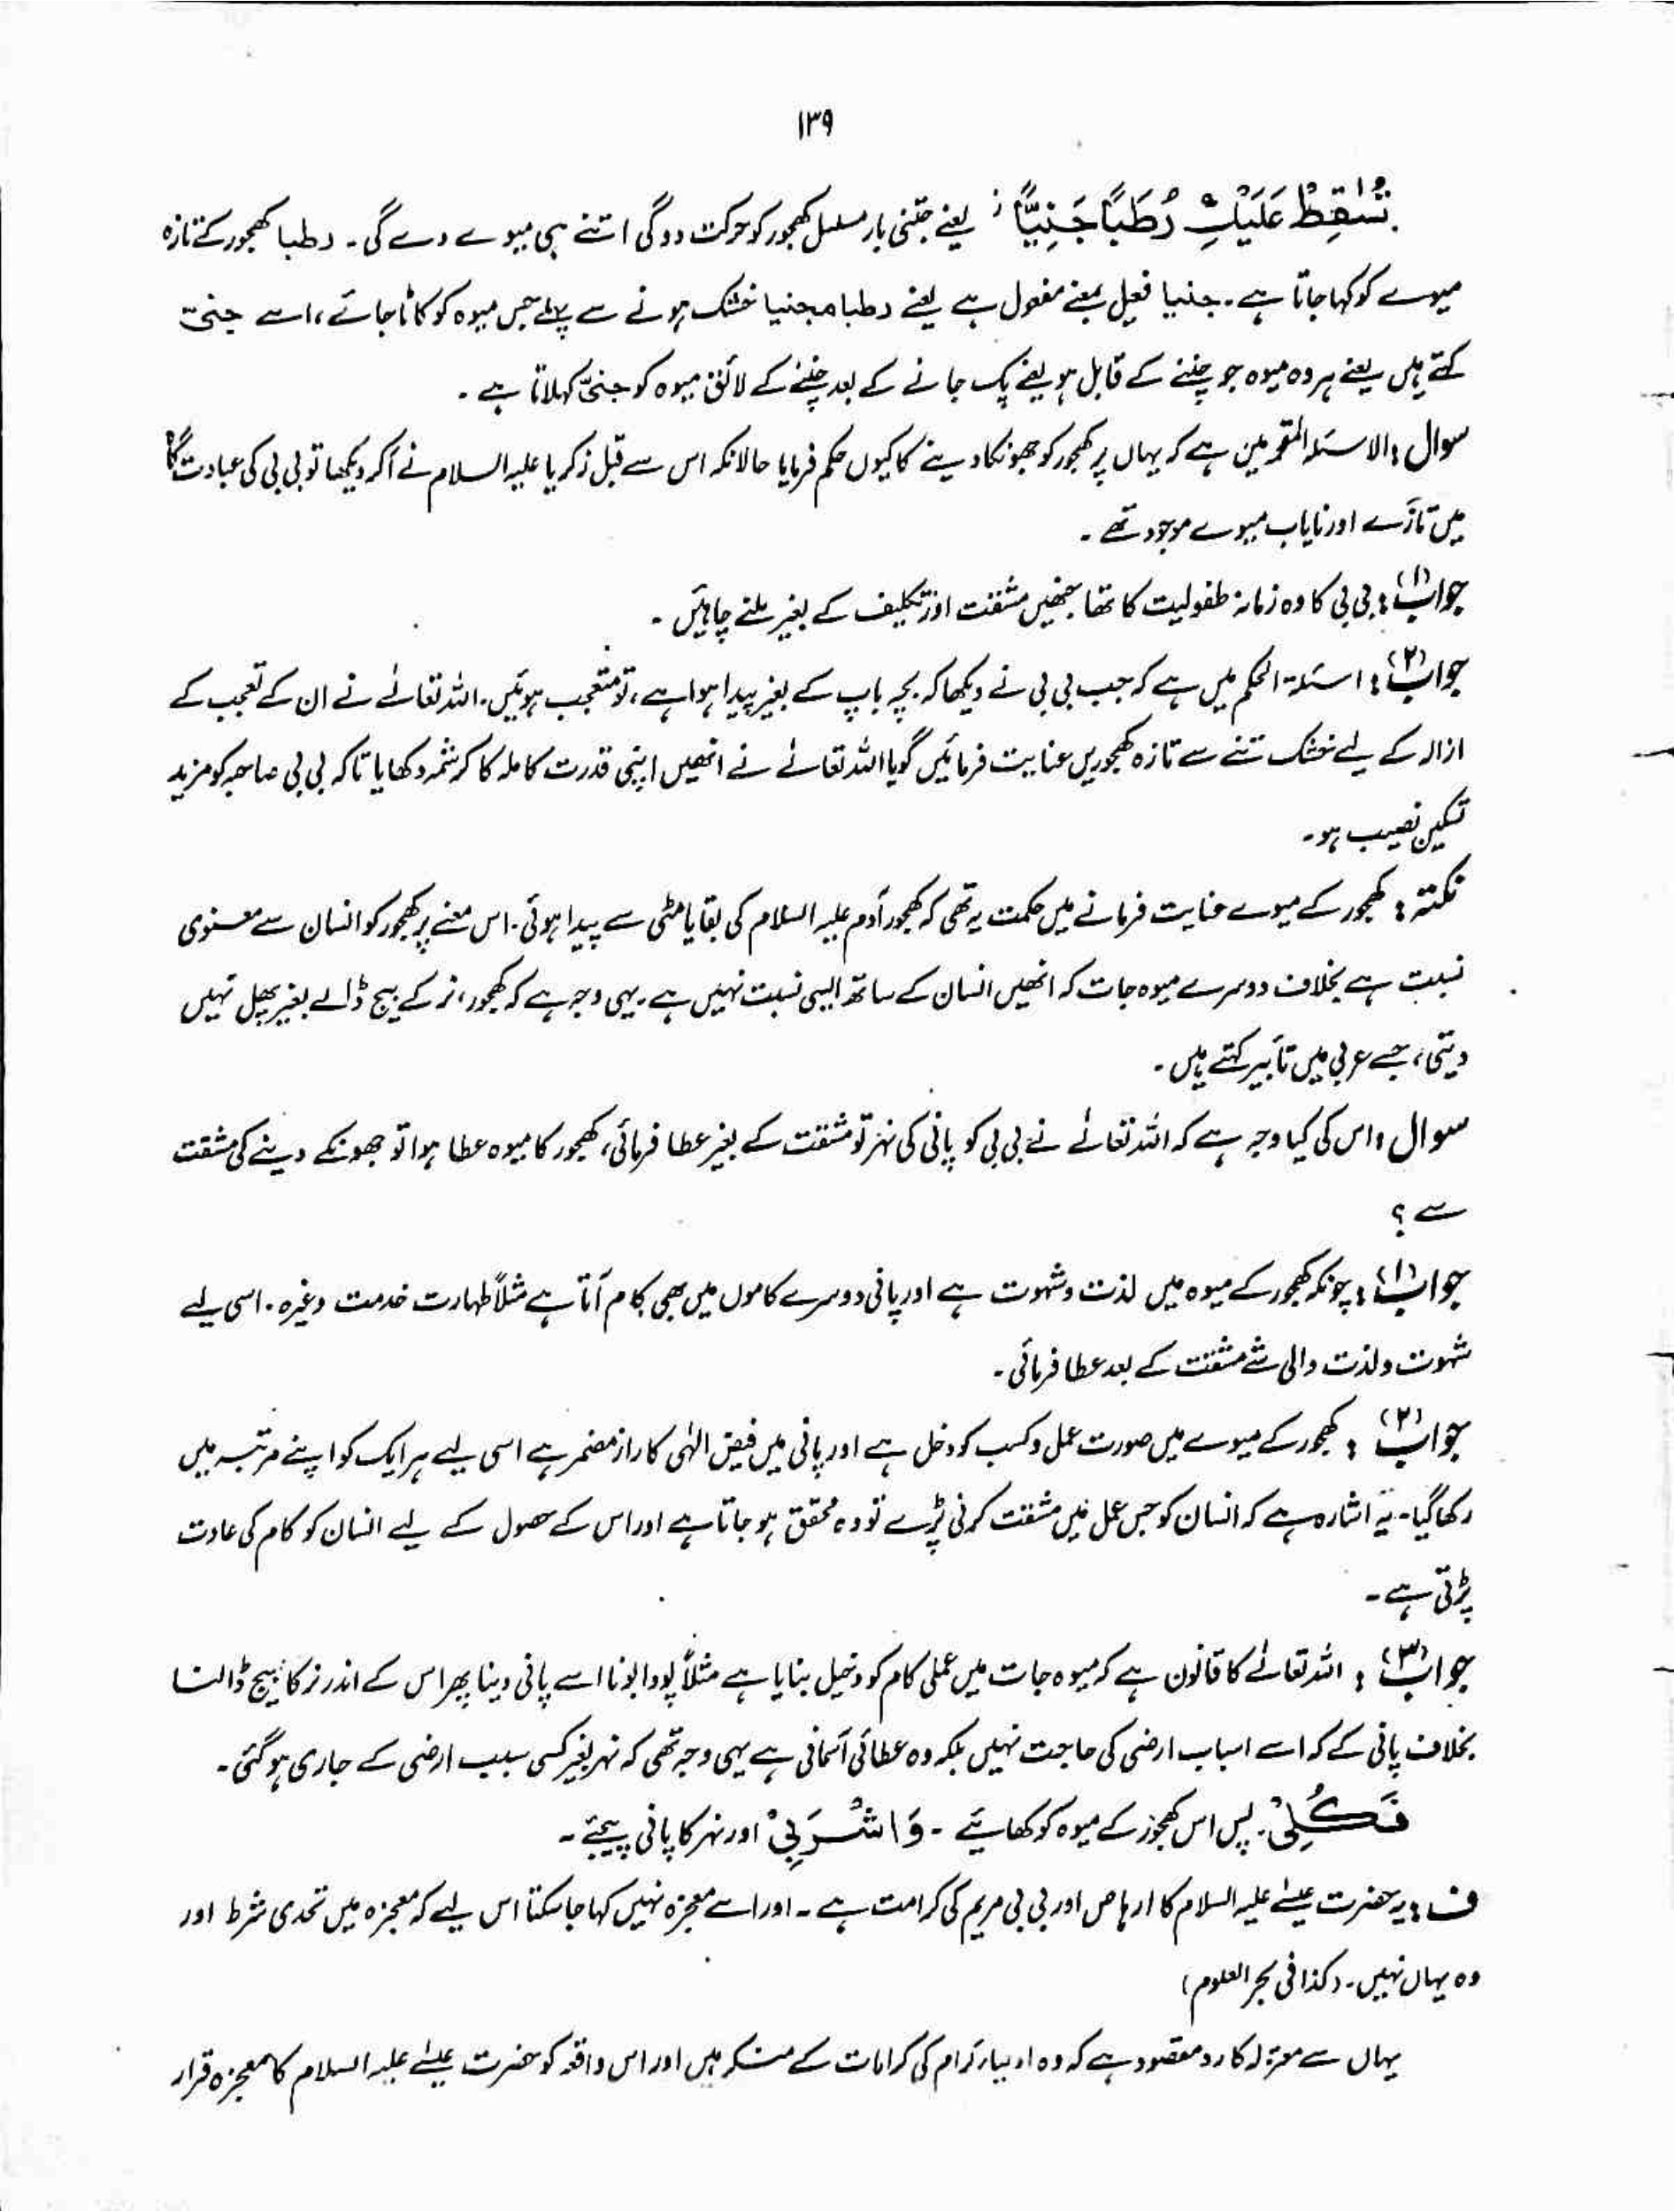 ۱۳۹
تُسٰقِطْ عَلَیْكِ رُطَبًا جَنِیًّا ؗ یعنے جتنی بار مسلسل کھجور کو حرکت دو گی اتنے ہی میوے دے گی۔ رطبا کھجور کے تازہ
میوے کو کہا جاتا ہے۔ جنیا فعیل بمعنے مفعول ہے یعنے رطبا مجنیا خشک ہونے سے پہلے جس میوہ کو کاٹا جائے، اسے جنیّ
کہتے ہیں یعنے ہر وہ میوہ جو چننے کے قابل ہو یعنے پک جانے کے بعد چننے کے لائق میوہ کو جنیّ کہلاتا ہے۔
سوال : الاسئلۃ المقحمۃ میں ہے کہ یہاں پر کھجور کو جھونکا دینے کا کیوں حکم فرمایا حالانکہ اس سے قبل زکریا علیہ السلام نے آکر دیکھا تو بی بی کی عبادت گاہ
میں تازے اور نایاب میوے موجود تھے۔
جواب (۱) : بی بی کا وہ زمانہ طفولیت کا تھا جنھیں مشقت اور تکلیف کے بغیر ملنے چاہئیں۔
جواب (۲) : اسئلۃ الحکم میں ہے کہ جب بی بی نے دیکھا کہ بچہ باپ کے بغیر پیدا ہوا ہے، تو متعجب ہوئیں۔ اللہ تعالےٰ نے ان کے تعجب کے
ازالہ کے لیے خشک تنے سے تازہ کھجوریں عنایت فرمائیں گویا اللہ تعالےٰ نے انھیں اپنی قدرت کاملہ کا کرشمہ دکھایا تاکہ بی بی صاحبہ کو مزید
تسکین نصیب ہو۔
نکتہ : کھجور کے میوے عنایت فرمانے میں حکمت یہ تھی کہ کھجور آدم علیہ السلام کی بقایا مٹی سے پیدا ہوئی۔ اس معنے پر کھجور کو انسان سے معنوی
نسبت ہے بخلاف دوسرے میوہ جات کہ انھیں انسان کے ساتھ ایسی نسبت نہیں ہے۔ یہی وجہ ہے کہ کھجور، نر کے بیج ڈالے بغیر پھل نہیں
دیتی، جسے عربی میں تأبیر کہتے ہیں۔
سوال : اس کی کیا وجہ ہے کہ اللہ تعالےٰ نے بی بی کو پانی کی نہر تو مشقت کے بغیر عطا فرمائی، کھجور کا میوہ عطا ہوا تو جھونکے دینے کی مشقت
سے ؟
جواب (۱) : چونکہ کھجور کے میوہ میں لذت و شہوت ہے اور پانی دوسرے کاموں میں بھی کام آتا ہے مثلاً طہارت خدمت وغیرہ۔ اسی لیے
شہوت و لذت والی شے مشقت کے بعد عطا فرمائی۔
جواب (۲) : کھجور کے میوے میں صورت عمل و کسب کو دخل ہے اور پانی میں فیض الٰہی کا راز مضمر ہے اسی لیے ہر ایک کو اپنے مرتبہ میں
رکھا گیا۔ یہ اشارہ ہے کہ انسان کو جس عمل میں مشقت کرنی پڑے تو وہ محقق ہو جاتا ہے اور اس کے حصول کے لیے انسان کو کام کی عادت
پڑتی ہے۔
جواب (۳) : اللہ تعالےٰ کا قانون ہے کہ میوہ جات میں عملی کام کو دخیل بنایا ہے مثلاً پودا بونا اسے پانی دینا پھر اس کے اندر نر کا بیج ڈالنا
بخلاف پانی کے کہ اسے اسباب ارضی کی حاجت نہیں بلکہ وہ عطائی آسمانی ہے یہی وجہ تھی کہ نہر بغیر کسی سبب ارضی کے جاری ہو گئی۔
فَكُلِیْ۔ پس اس کھجور کے میوہ کو کھائیے۔ وَاشْرَبِیْ اور نہر کا پانی پیجیے۔
ف : یہ حضرت عیسےٰ علیہ السلام کا ارہاص اور بی بی مریم کی کرامت ہے۔ اور اسے معجزہ نہیں کہا جا سکتا اس لیے کہ معجزہ میں تحدی شرط اور
وہ یہاں نہیں۔ (کذا فی بحر العلوم)
یہاں سے معتزلہ کا رد مقصود ہے کہ وہ اولیاء کرام کی کرامات کے منکر ہیں اور اس واقعہ کو حضرت عیسےٰ علیہ السلام کا معجزہ قرار